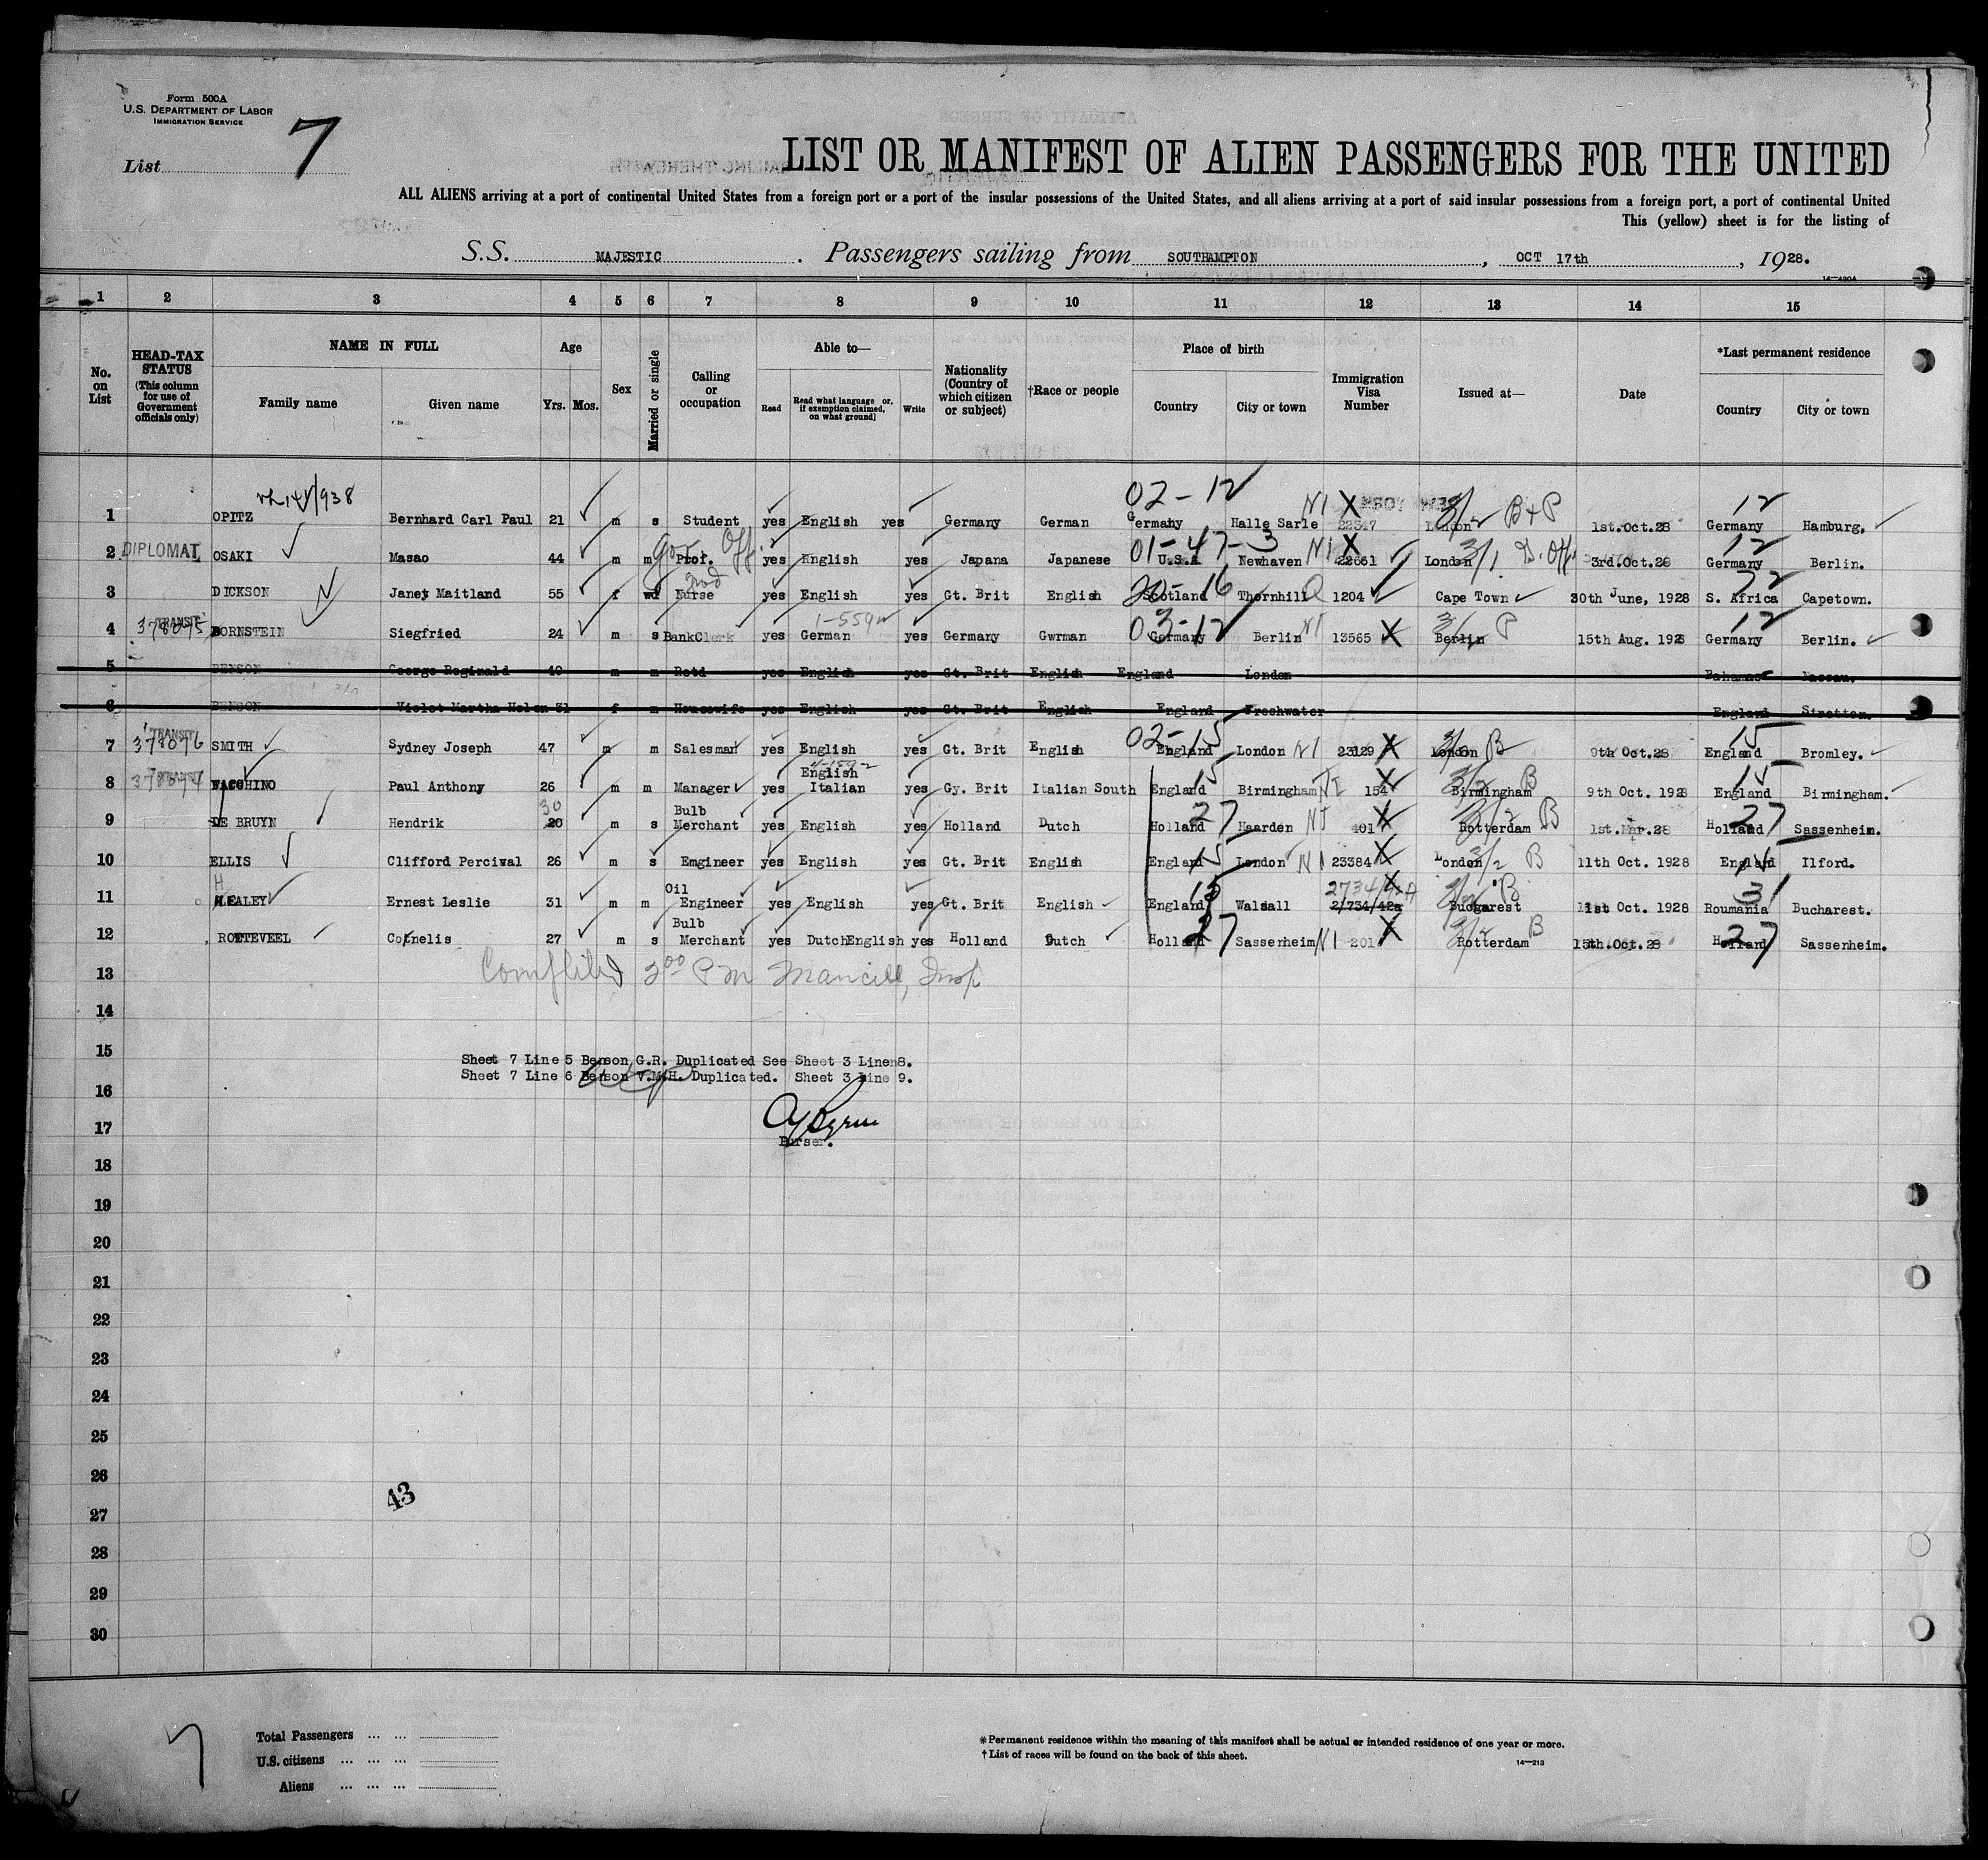 Form 500A
U.S. DEPARTMENT OF LABOR
IMMIGRATION SERVICE
List 7
LIST OR MANIFEST OF ALIEN PASSENGERS FOR THE UNITED
ALL ALIENS arriving at a port of continental United States from a foreign port or a port of the insular possessions of the United States, and all aliens arriving at a port of said insular possessions from a foreign port, a port of continental United
This (yellow) sheet is for the listing of
S.S. MAJESTIC. Passengers sailing from SOUTHAMPTON, OCT 17th, 1928.
14—430A
1 2 3 4 5 6 7 8 9 10 11 12 13 14 15
No. on List
HEAD-TAX STATUS (This column for use of Government officials only)
NAME IN FULL
Family name Given name
Age
Yrs. Mos.
Sex
Married or single
Calling or occupation
Able to—
Read Read what language or, if exemption claimed, on what ground] Write
Nationality (Country of which citizen or subject)
†Race or people
Place of birth
Country City or town
Immigration Visa Number
Issued at—
Date
*Last permanent residence
Country City or town
02-12 NI X 3/2 B+P 12
1 OPITZ Bernhard Carl Paul 21 m s Student yes English yes Germany German Germany Halle Sarle 22347 London 1st.Oct.28 Germany Hamburg.
Gov. Off. 01-47-3 NI X 3/1 D.Off 12
2 DIPLOMAT OSAKI Masao 44 m m Prof. yes English yes Japana Japanese U.S.A Newhaven 22661 London 3rd.Oct.28 Germany Berlin.
20-16 Q 72
3 DICKSON Janet Maitland 55 f wd Nurse yes English yes Gt. Brit English Scotland Thornhill 1204 Cape Town 30th June, 1928 S. Africa Capetown.
1-559 03-12 NI X 3/2 P 12
4 TRANSIT 378075 BORNSTEIN Siegfried 24 m s BankClerk yes German yes Germany Gwrman Germany Berlin 13565 Berlin 15th Aug. 1928 Germany Berlin.
5 BENSON George Reginald 40 m m Retd yes English yes Gt. Brit English England London Bahamas Nassau.
6 BENSON Violet Martha Helen 31 f m Housewife yes English yes Gt. Brit English England Freshwater England Stretton.
02-15 NI X B 15
7 TRANSIT 378076 SMITH Sydney Joseph 47 m m Salesman yes English yes Gt. Brit English England London 23129 London 9th Oct.28 England Bromley.
English 15 NI X 3/2 B 15
8 TRANSIT 378074 FACCHINO Paul Anthony 26 m m Manager yes Italian yes Gy. Brit Italian South England Birmingham 154 Birmingham 9th Oct. 1928 England Birmingham.
30 Bulb 27 NI X 3/2 B 27
9 DE BRUYN Hendrik 20 m s Merchant yes English yes Holland Dutch Holland Haarden 401 Rotterdam 1st.Mar.28 Holland Sassenheim.
15 NI X 3/2 B 15
10 ELLIS Clifford Percival 26 m s Emgineer yes English yes Gt. Brit English England London 23384 London 11th Oct. 1928 England Ilford.
H Oil 15 2734/42A X 3/2 B 31
11 HEALEY Ernest Leslie 31 m m Engineer yes English yes Gt. Brit English England Walsall 2/734/42a Bucgarest 11st Oct. 1928 Roumania Bucharest.
Bulb 27 NI X 3/2 B 27
12 ROTTEVEEL Cornelis 27 m s Merchant yes DutchEnglish yes Holland Dutch Holland Sassenheim 201 Rotterdam 15th.Oct.28 Holland Sassenheim.
13
14
15
Sheet 7 Line 5 Benson G.R. Duplicated See Sheet 3 Line 8.
Sheet 7 Line 6 Benson V.M.H. Duplicated. Sheet 3 Line 9.
16
17
Purser.
18
19
20
21
22
23
24
25
26
43
27
28
29
30
7
Total Passengers ... ...
U.S. citizens ... ... ...
Aliens ... ... ...
*Permanent residence within the meaning of this manifest shall be actual or intended residence of one year or more.
†List of races will be found on the back of this sheet.
14—213